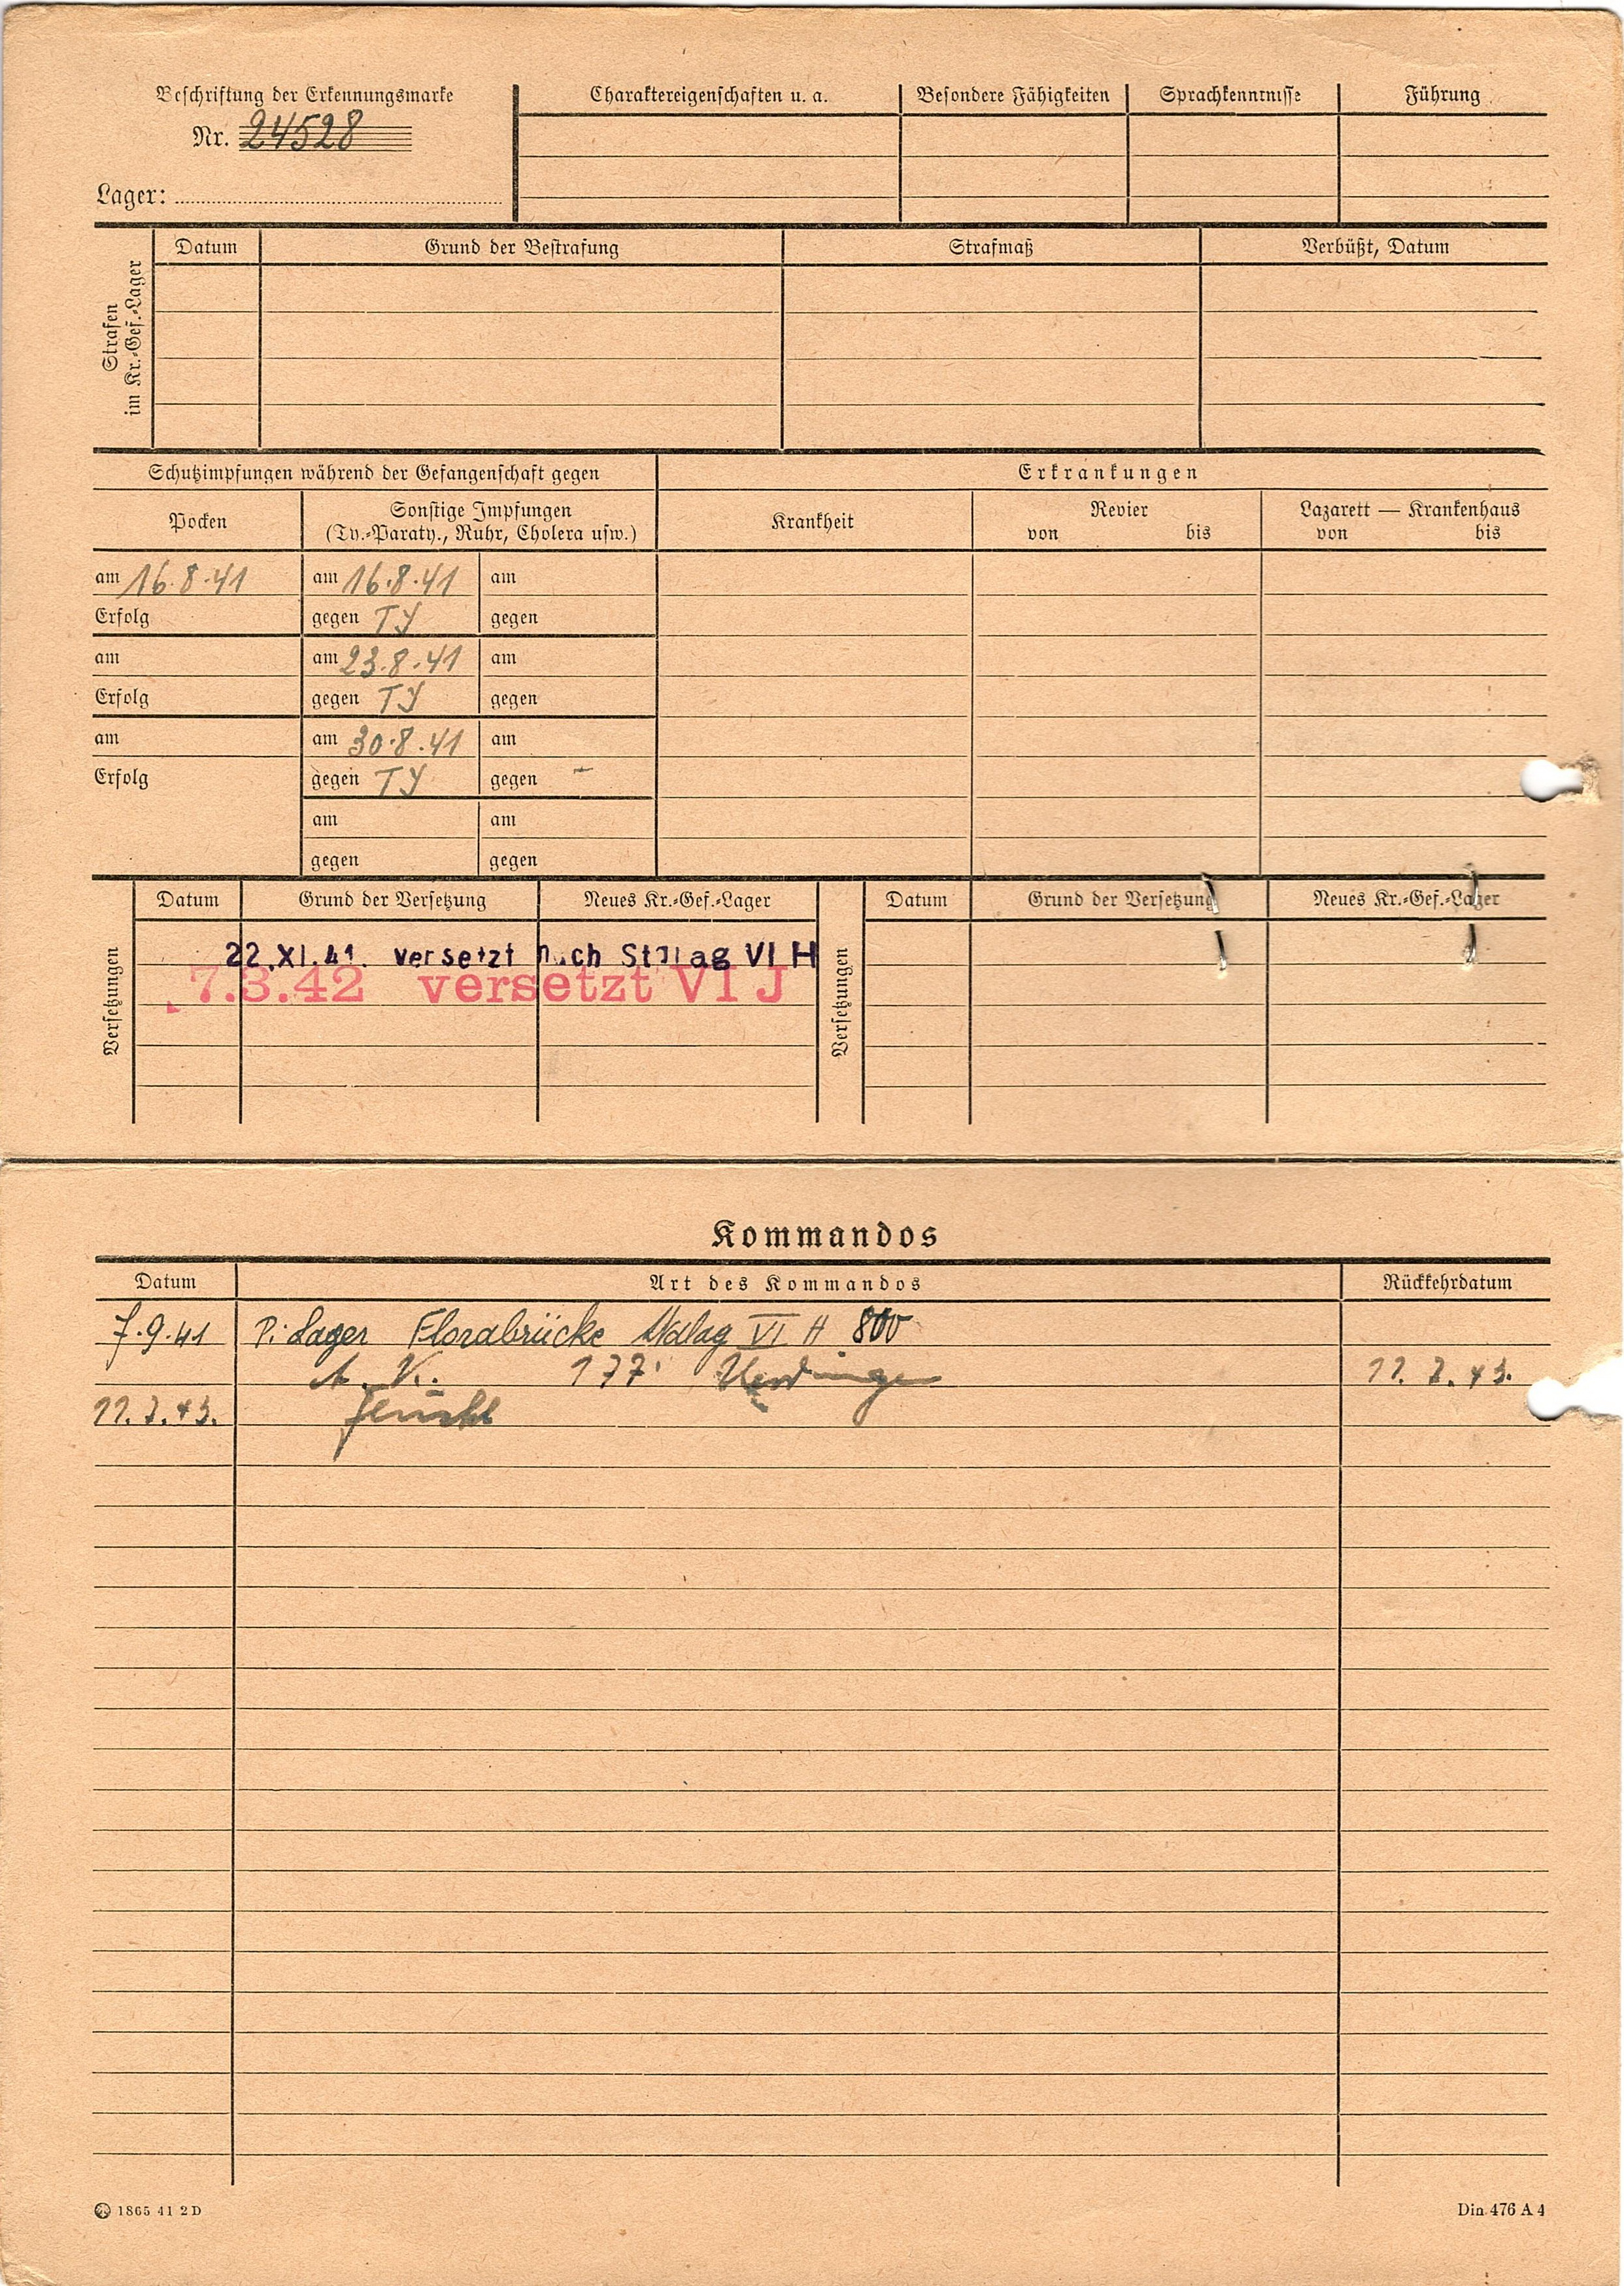 Beschriftung der Erkennungsmarke
Nr. 24528
Lager:
Charaktereigenschaften u. a.
Besondere Fähigkeiten
Sprachkenntnisse
Führung
Strafen
im Kr.-Gef.-Lager
Datum
Grund der Bestrafung
Strafmaß
Verbüßt, Datum
Schutzimpfungen während der Gefangenschaft gegen
Erkrankungen
Pocken
Sonstige Impfungen
(Ty.-Paraty., Ruhr, Cholera usw.)
Krankheit
Revier
von bis
Lazarett — Krankenhaus
von bis
am 16.8.41 am 16.8.41 am
Erfolg gegen TY gegen
am am 23.8.41 am
Erfolg gegen TY gegen
am am 30.8.41 am
Erfolg gegen TY gegen
am am
gegen gegen
Versetzungen
Datum Grund der Versetzung Neues Kr.-Gef.-Lager
22.XI.41. versetzt nach Stalag VI H
7.3.42 versetzt VI J
Versetzungen
Datum Grund der Versetzung Neues Kr.-Gef.-Lager
Kommandos
Datum Art des Kommandos Rückkehrdatum
7.9.41 Pi. Lager Florabrücke Stalag VI H 800
A. K. 177 Uerdingen 11. 7. 43.
11. 7. 43.
1865 41 2D
Din 476 A 4